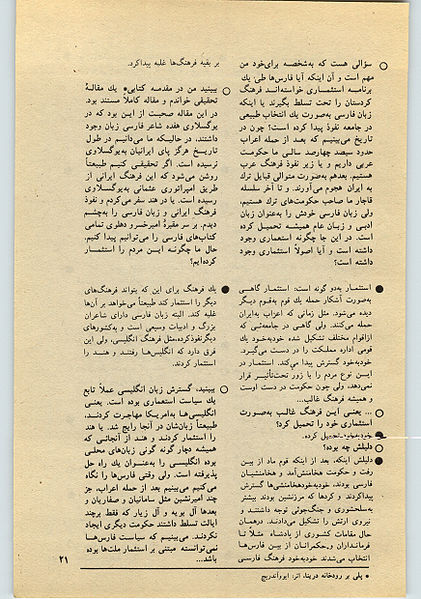 سؤالی هست که به‌شخصه برای‌خود من
مهم است و آن اینکه آیا فارس‌ها طی‌ یک
برنامه استثماری خواسته‌انـد فرهنگ
کردستان را تحت تسلط بگیرند یا اینکه
زبان فارسی به‌صورت یک انتخاب طبیعی
در جامعه نفوذ پیدا کرده است؟ چون در
تاریخ می‌بینیم که بعـد از حمله اعراب
حدود سیصد چهارصد سالـی ما حکومت
عربی داریم و یا زیر نفوذ فرهنگ عرب
هستیم. بعدهم به‌صورت متوالی قبایل ترک
به ایران هجوم می‌آورند. و تا آخر سلسله
قاجار ما صاحب حکومت‌های ترک هستیم،
ولی زبان فارسی خودش را به‌عنوان زبان
ادبـی و زبـان عام همیشـه تحمیـل کرده
است. در این جا چگونه استعماری وجود
داشته است و آیا اصولاً استثماری وجود
داشته است؟
استثمار به‌دو گونه است: استثمار گاهـی
به‌صورت آشکار حمله یک قوم به‌قوم دیگر
دیده می‌شود. مثل زمانی که اعراب به‌ایران
حمله می‌کنند. ولی گاهـی در جامعه‌ئی که
ازاقوام مختلف تشکیل شده خودبه‌خـود یک
قومی اداره مملکت را در دست می‌گیـرد.
خودبه‌خود گسترش پیدا می‌کند. استثمار در
این نوع مردم را با زور تحت‌تأثیـر قرار
نمی‌دهد، ولی چون حکومت در دست اوست
و همیشه فرهنگ غالب...
... یعنی این فرهنگ غالب به‌صورت
استثماری خود را تحمیل کرد؟
خودبه‌خود تحمیل کرده.
دلیلش چه بوده؟
دلیلش اینکه، بعد از اینکه قوم ماد از بین
رفت و حکومت هخامنش‌آمد و هخامنشیان
فارسی بودند، خودبه‌خودهخامنشی‌ها گسترش
پیداکردند و کردها که مرزنشین بودند بیشتر
به‌سلحشوری و جنگجوئی توجه داشتنـد و
نیروی ارتش را تشکیل می‌دادند. درهمـان
حال مقامات کشوری از پادشاه مثـلاً تـا
فرماندار‌ان و‌حکمرانان از بین فارس‌هـا
انتخاب می‌شدند خودبه‌خود فرهنگ فارسـی
بر بقیه فرهنگ‌ها غلبه پیداکرد.
ببینید من در مقدمه کتابی* یک مقالـهٔ
تحقیقی خواندم و مقاله کاملاً مستند بود.
در این مقاله صحبت از ایـن بود که در
یوگسلاوی هفده شاعر فارسی زبان وجود
داشتند. در حالیـکه ما می‌دانیم در طول
تاریخ هرگز پای ایرانیان به‌یوگسلاوی
نرسیده است. اگر تحقیقـی کنیم طبیعتاً
روشن می‌شود که این فرهنگ ایرانی از
طریق امپراتوری عثمانی به‌یوگسلاوی
رسیده است. یا در هند سفر می‌کردم و نفوذ
فرهنگ ایرانی و زبان فارسی را به‌چشم
دیدم. بر سر مقبرهٔ امیرخسرو دهلوی تمامی
کتاب‌های فارسی را می‌توانیم پیدا کنیم.
حال ما چگونـه این مردم را استثمـار
کرده‌ایم؟
یک فرهنگ برای این که بتواند فرهنگ‌های
دیگر را استثمار کند طبیعتاً می‌خواهد بر آن‌ها
غلبه کند. البته زبان فارسی دارای شاعران
بزرگ و ادبیات وسیعی است و به‌کشورهای
دیگرنفوذکرده،مثل فرهنگ انگلیس، ولی این
فرق دارد که انگلیس‌ها رفتنـد و هند را
استثمار کردند.
ببینید، گسترش زبان انگلیسی عملاً تابع
یک سیاست استعماری بوده است. یعنـی
انگلیس‌ها به‌امریکا مهاجرت کردنـد،
طبیعتاً زبان‌شان در آنجا رایج شد. یا هند
را استثمار کردند و هند از آنجائی که
همیشه دچار گونه گونی زبان‌های محلـی
بوده انگلیسی را به‌عنـوان یک راه حل
پذیرفته است. ولی وقتی فارس‌ها را نگاه
می‌کنیم می‌بینیم بعد از حمله اعراب، جز
چند امیرنشین مثل سامانیان و صفاریان و
بعدها آل بویه و آل زیار که فقط برچند
ایالت تسلط داشتند حکومت دیگری ایجاد
نکردنـد. می‌بینیـم که سیاست فارس‌ها
نمی‌توانسته مبتنی بر استثمار ملت‌ها بوده
باشد...
* پلی بر رودخانه درینا، اثر: ایوو‌آندریچ
۲۱